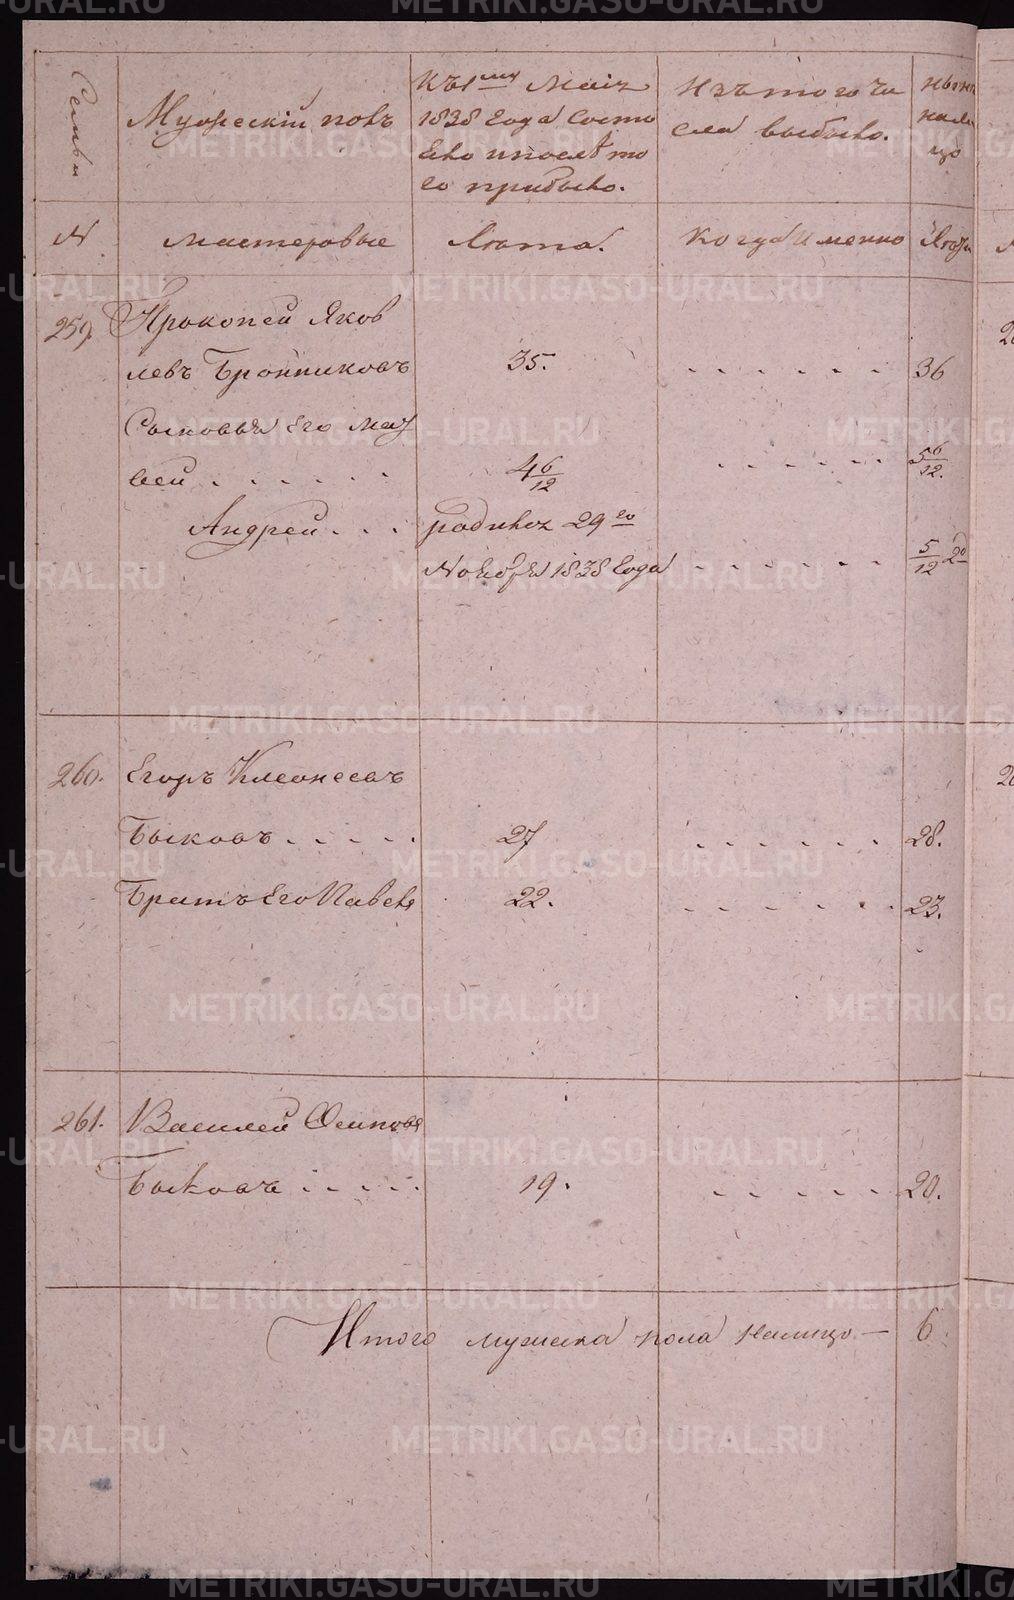 Семьи
Мужескій полъ
Къ 1му Маія
1838 года состо
яло и послѣ то
го прибыло.
Изъ того чи
сла выбыло.
нынѣ
нали
цо
№
Мастеровые
Лѣта.
Когда Именно
Лѣта
259.
Прокопей Яков
левъ Бронниковъ
35.
36
Сыновья Его Мат
вей
4 6/12
5 6/12.
Андрей
родился 29го
Ноября 1838 года
5/12
260.
Егоръ
Быковъ
27
28.
Братъ Его Павелъ
22.
23.
261.
Василей Осиповъ
Быковъ
19.
20.
Итого мужеска пола налицо — 6.
METRIKI.GASO-URAL.RU